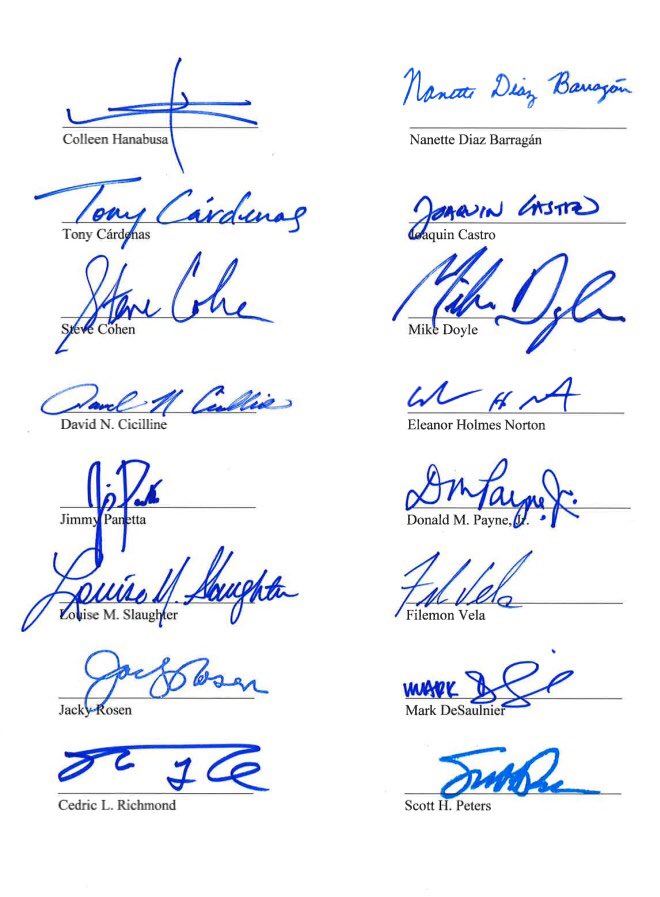 Nanette Diaz Barragán
Colleen Hanabusa
Nanette Diaz Barragán
Tony Cárdenas
Joaquin Castro
Tony Cárdenas
Joaquin Castro
Steve Cohen
Mike Doyle
Steve Cohen
Mike Doyle
David N Cicilline
David N. Cicilline
Eleanor Holmes Norton
Jimmy Panetta
DM Payne, Jr.
Donald M. Payne, Jr.
Louise M. Slaughter
Fil Vela
Louise M. Slaughter
Filemon Vela
Jacky Rosen
MARK
Jacky Rosen
Mark DeSaulnier
Cedric L. Richmond
Scott H. Peters